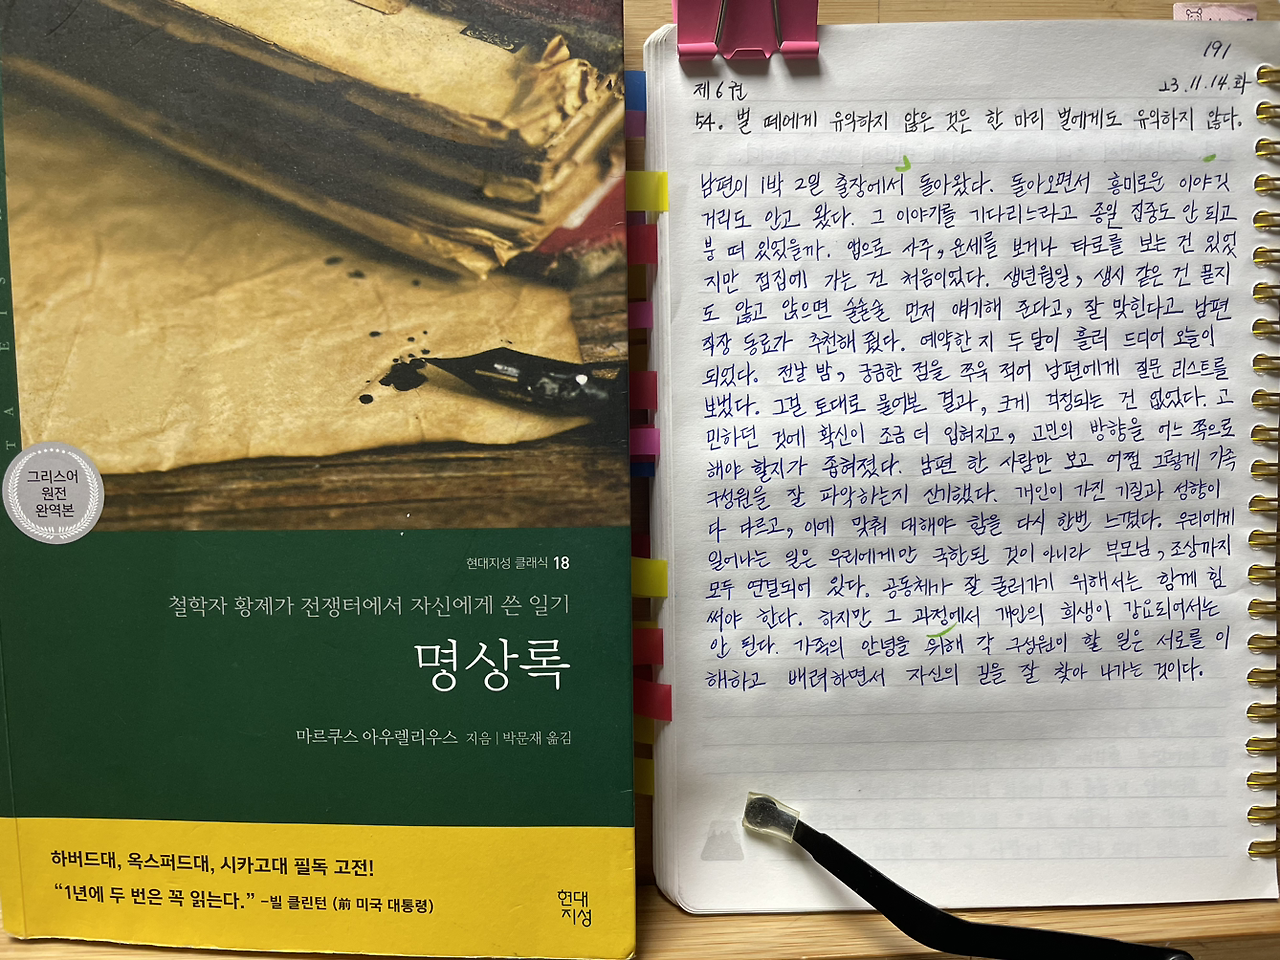 TAEIS
그리스어
원전
완역본
현대지성 클래식 18
철학자 황제가 전쟁터에서 자신에게 쓴 일기
명상록
마르쿠스 아우렐리우스 지음 | 박문재 옮김
하버드대, 옥스퍼드대, 시카고대 필독 고전!
“1년에 두 번은 꼭 읽는다.” –빌 클린턴 (前 미국 대통령)
현대
지성
191
제6권 23.11.14.화
54. 벌 떼에게 유익하지 않은 것은 한 마리 벌에게도 유익하지 않다.
남편이 1박 2일 출장에서 돌아왔다. 돌아오면서 흥미로운 이야깃
거리도 안고 왔다. 그 이야기를 기다리느라고 종일 집중도 안 되고
붕 떠 있었을까. 앱으로 사주, 운세를 보거나 타로를 보는 건 있었
지만 점집에 가는 건 처음이었다. 생년월일, 생시 같은 건 묻지
도 않고 앉으면 술술술 먼저 얘기해 준다고, 잘 맞힌다고 남편
직장 동료가 추천해 줬다. 예약한 지 두 달이 흘러 드디어 오늘이
되었다. 전날 밤, 궁금한 점을 쭈욱 적어 남편에게 질문 리스트를
보냈다. 그걸 토대로 물어본 결과, 크게 걱정되는 건 없었다. 고
민하던 것에 확신이 조금 더 입혀지고, 고민의 방향을 어느 쪽으로
해야 할지가 좁혀졌다. 남편 한 사람만 보고 어쩜 그렇게 가족
구성원을 잘 파악하는지 신기했다. 개인이 가진 기질과 성향이
다 다르고, 이에 맞춰 대해야 함을 다시 한번 느꼈다. 우리에게
일어나는 일은 우리에게만 국한된 것이 아니라 부모님, 조상까지
모두 연결되어 있다. 공동체가 잘 굴러가기 위해서는 함께 힘
써야 한다. 하지만 그 과정에서 개인의 희생이 강요되어서는
안 된다. 가족의 안녕을 위해 각 구성원이 할 일은 서로를 이
해하고 배려하면서 자신의 길을 잘 찾아 나가는 것이다.